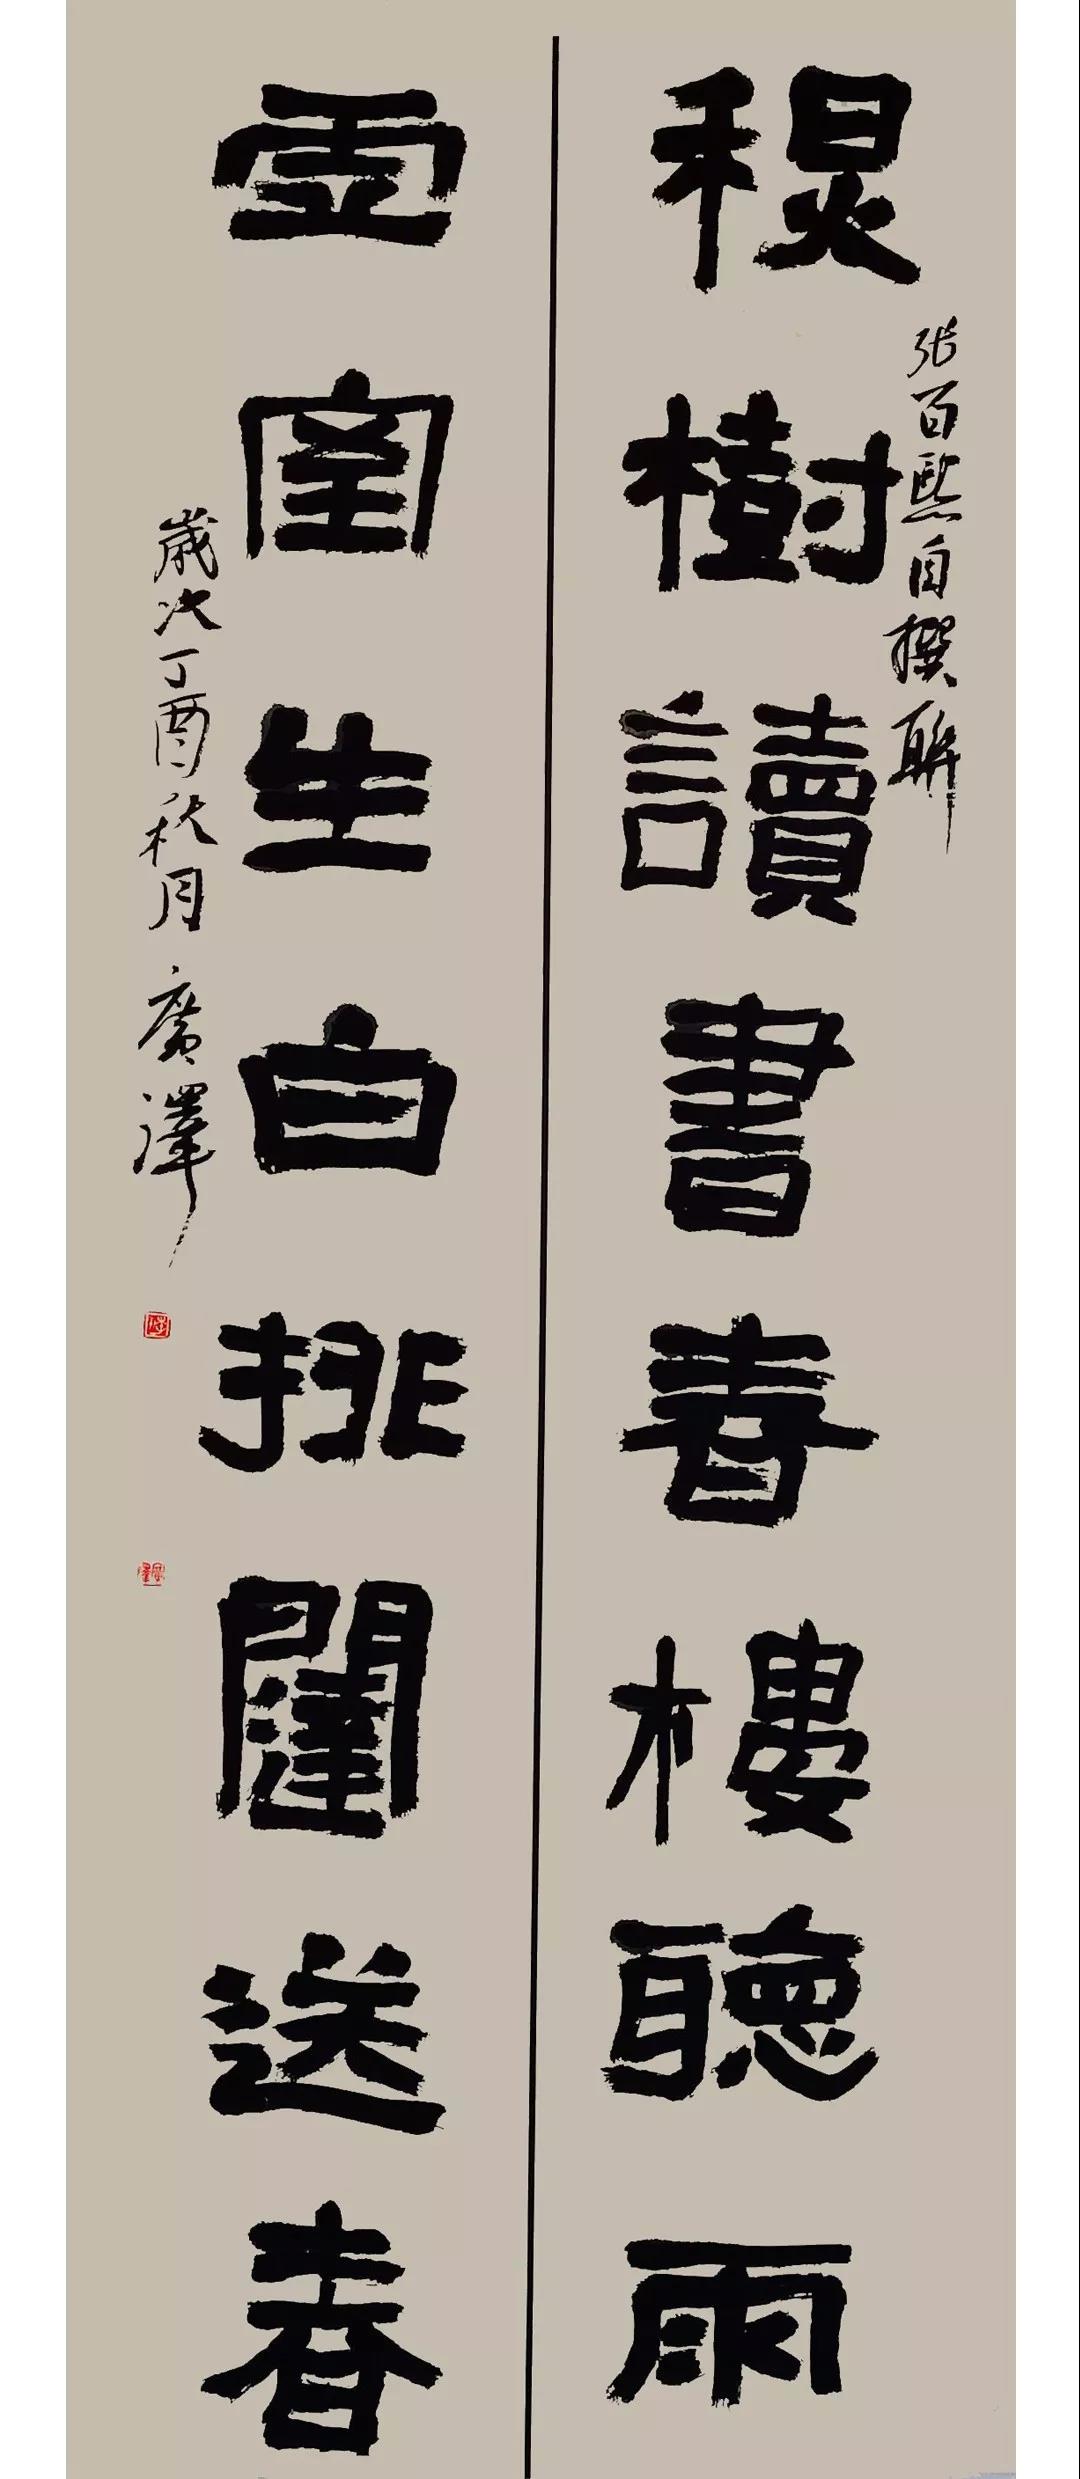 樹讀書春樓聽雨
張百熙自撰聯
虛室生白排闥送春
歲次丁酉秋月廣澤